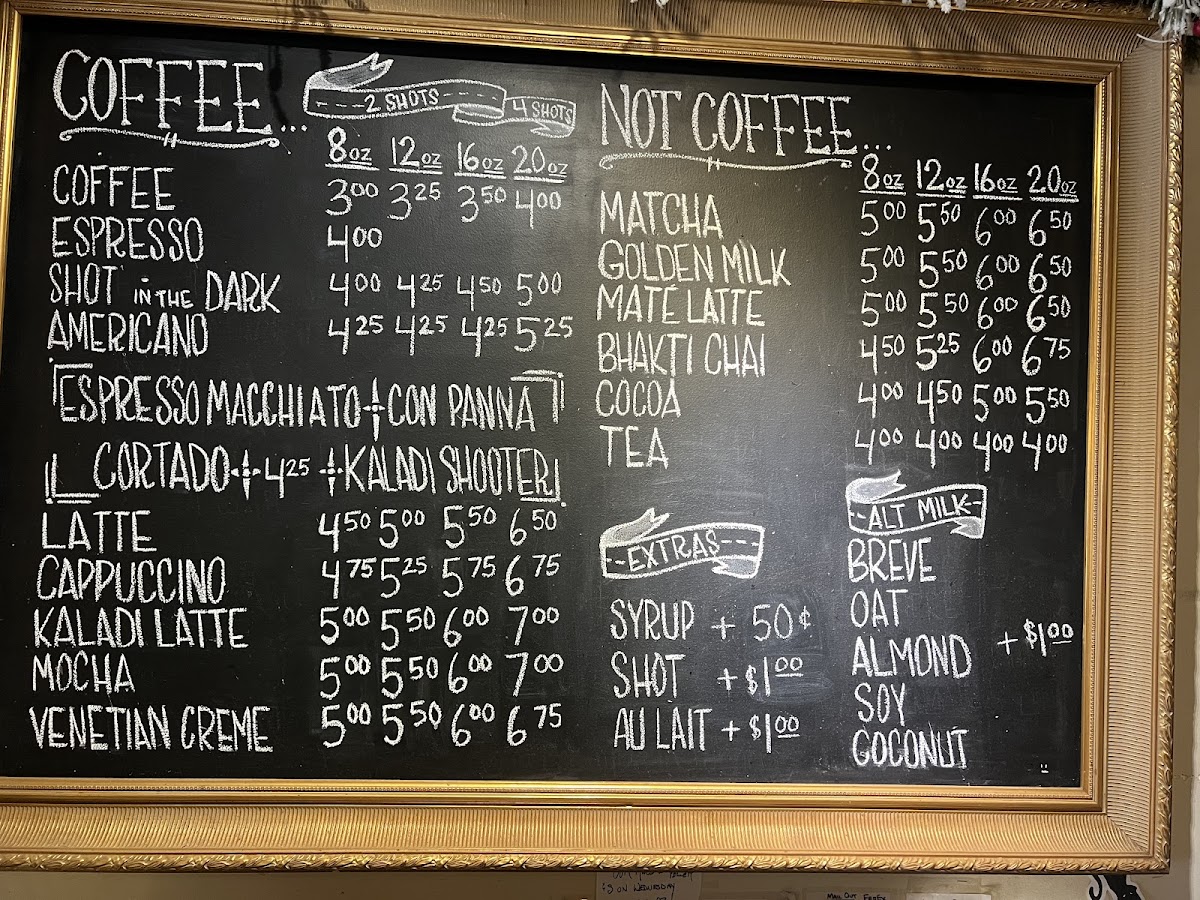 COFFEE...
2 SHOTS
4 SHOTS
8oz 12oz 16oz 20oz
COFFEE 3.00 3.25 3.50 4.00
ESPRESSO 4.00
SHOT IN THE DARK 4.00 4.25 4.50 5.00
AMERICANO 4.25 4.25 4.25 5.25
ESPRESSO MACCHIATO CON PANNA
CORTADO 4.25 KALADI SHOOTER
LATTE 4.50 5.00 5.50 6.50
CAPPUCCINO 4.75 5.25 5.75 6.75
KALADI LATTE 5.00 5.50 6.00 7.00
MOCHA 5.00 5.50 6.00 7.00
VENETIAN CREME 5.00 5.50 6.00 6.75
NOT COFFEE...
8oz 12oz 16oz 20oz
MATCHA 5.00 5.50 6.00 6.50
GOLDEN MILK 5.00 5.50 6.00 6.50
MATÉ LATTE 5.00 5.50 6.00 6.50
BHAKTI CHAI 4.50 5.25 6.00 6.75
COCOA 4.00 4.50 5.00 5.50
TEA 4.00 4.00 4.00 4.00
EXTRAS
SYRUP + 50¢
SHOT + $1.00
AU LAIT + $1.00
ALT MILK
BREVE
OAT
ALMOND + $1.00
SOY
COCONUT
ON WEDNESDAY